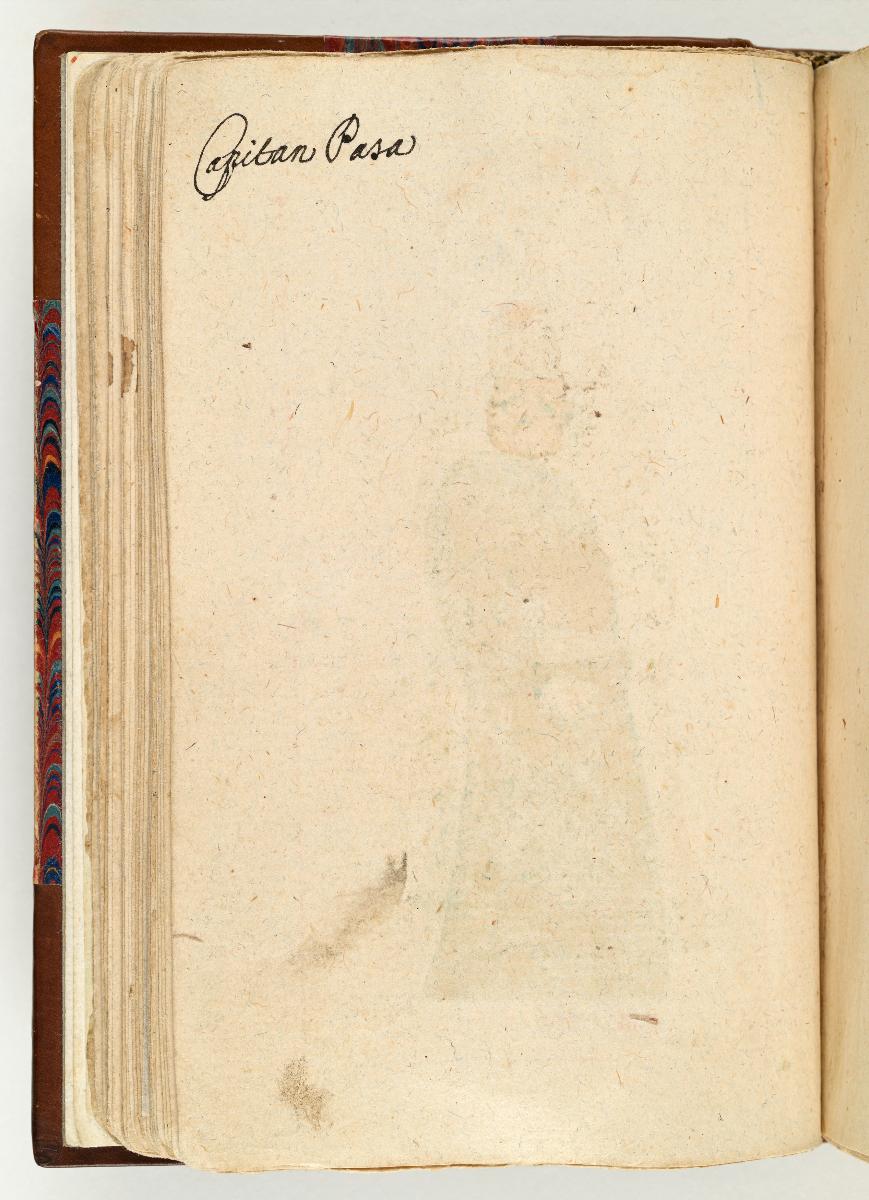 Capitan Pasa